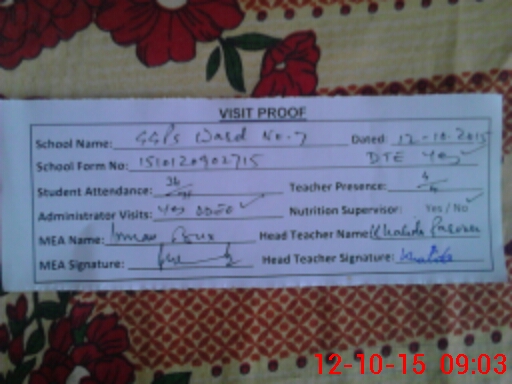 VISIT PROOF
School Name: GGPS Ward No-7 Dated: 12-10-2015
School Form No: DTE Yes ✓
Student Attendance: Teacher Presence: 4/4
Administrator Visits: Yes DDEO ✓ Nutrition Supervisor: Yes / No ✓
MEA Name: Imran Head Teacher Name: Khalida Parveen
MEA Signature: Head Teacher Signature: Khalida
12-10-15 09:03